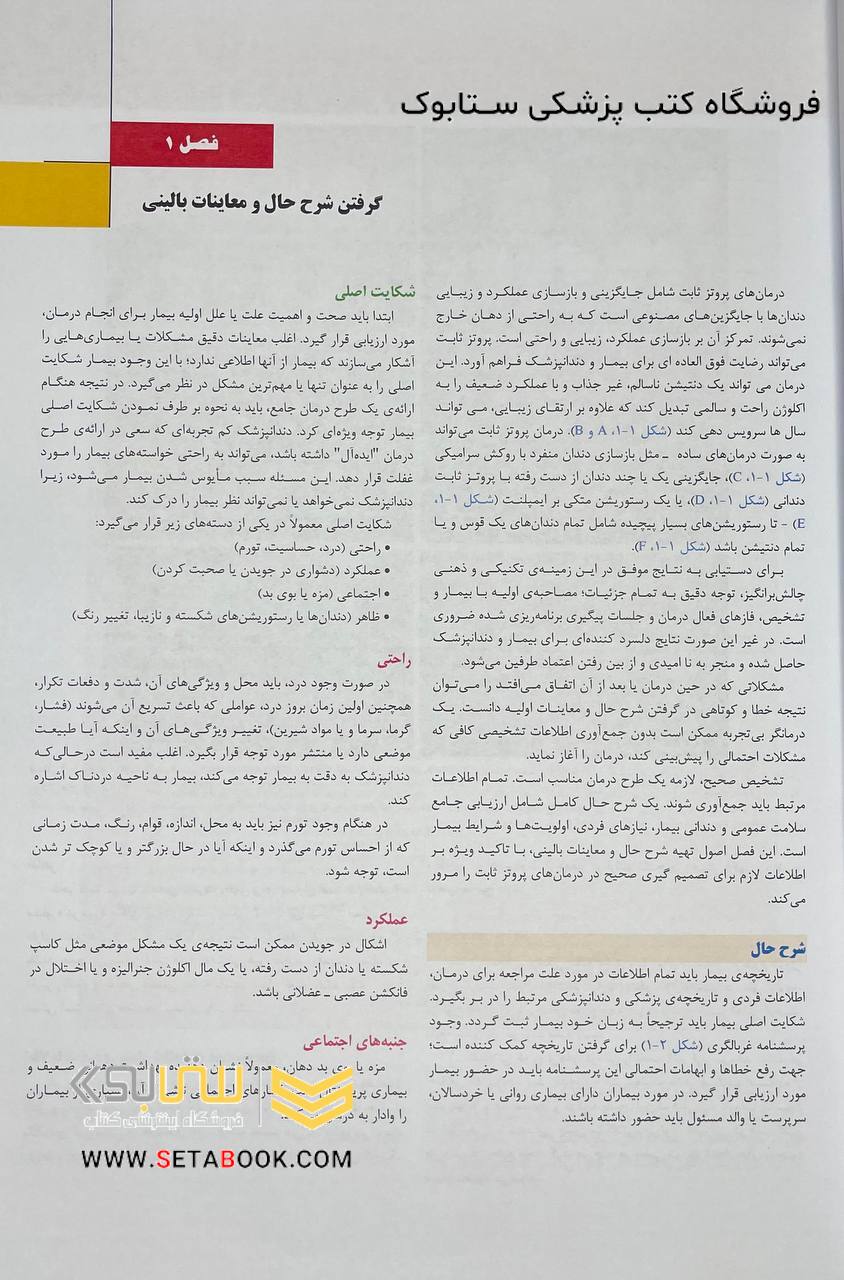 فروشگاه کتب پزشکی ستابوک
فصل ۱
گرفتن شرح حال و معاینات بالینی
درمان‌های پروتز ثابت شامل جایگزینی و بازسازی عملکرد و زیبایی
دندان‌ها با جایگزین‌های مصنوعی است که به راحتی از دهان خارج
نمی‌شوند. تمرکز آن بر بازسازی عملکرد، زیبایی و راحتی است. پروتز ثابت
می‌تواند رضایت فوق العاده ای برای بیمار و دندانپزشک فراهم آورد. این
درمان می تواند یک دنتیشن ناسالم، غیر جذاب و با عملکرد ضعیف را به
اکلوژن راحت و سالمی تبدیل کند که علاوه بر ارتقای زیبایی، می تواند
سال ها سرویس دهی کند (شکل ۱-۱، A و B). درمان پروتز ثابت می‌تواند
به صورت درمان‌های ساده ـ مثل بازسازی دندان منفرد با روکش سرامیکی
(شکل ۱-۱، C)، جایگزینی یک یا چند دندان از دست رفته با پروتز ثابت
دندانی (شکل ۱-۱، D)، یا یک رستوریشن متکی بر ایمپلنت (شکل ۱-۱،
E) - تا رستوریشن‌های بسیار پیچیده شامل تمام دندان‌های یک قوس و یا
تمام دنتیشن باشد (شکل ۱-۱، F).
برای دستیابی به نتایج موفق در این زمینه‌ی تکنیکی و ذهنی
چالش‌برانگیز، توجه دقیق به تمام جزئیات؛ مصاحبه‌ی اولیه با بیمار و
تشخیص، فازهای فعال درمان و جلسات پیگیری برنامه‌ریزی شده ضروری
است. در غیر این صورت نتایج دلسرد کننده‌ای برای بیمار و دندانپزشک
حاصل شده و منجر به نا امیدی و از بین رفتن اعتماد طرفین می‌شود.
مشکلاتی که در حین درمان یا بعد از آن اتفاق می‌افتد را می‌توان
نتیجه خطا و کوتاهی در گرفتن شرح حال و معاینات اولیه دانست. یک
درمانگر بی‌تجربه ممکن است بدون جمع‌آوری اطلاعات تشخیصی کافی که
مشکلات احتمالی را پیش‌بینی کند، درمان را آغاز نماید.
تشخیص صحیح، لازمه یک طرح درمان مناسب است. تمام اطلاعات
مرتبط باید جمع‌آوری شوند. یک شرح حال کامل شامل ارزیابی جامع
سلامت عمومی و دندانی بیمار، نیازهای فردی، اولویت‌ها و شرایط بیمار
است. این فصل اصول تهیه شرح حال و معاینات بالینی، با تاکید ویژه بر
اطلاعات لازم برای تصمیم گیری صحیح در درمان‌های پروتز ثابت را مرور
می‌کند.
شرح حال
تاریخچه‌ی بیمار باید تمام اطلاعات در مورد علت مراجعه برای درمان،
اطلاعات فردی و تاریخچه‌ی پزشکی و دندانپزشکی مرتبط را در بر بگیرد.
شکایت اصلی بیمار باید ترجیحاً به زبان خود بیمار ثبت گردد. وجود
پرسشنامه غربالگری (شکل ۲-۱) برای گرفتن تاریخچه کمک کننده است؛
جهت رفع خطاها و ابهامات احتمالی این پرسشنامه باید در حضور بیمار
مورد ارزیابی قرار گیرد. در مورد بیماران دارای بیماری روانی یا خردسالان،
سرپرست یا والد مسئول باید حضور داشته باشند.
شکایت اصلی
ابتدا باید صحت و اهمیت علت یا علل اولیه بیمار برای انجام درمان،
مورد ارزیابی قرار گیرد. اغلب معاینات دقیق مشکلات یا بیماری‌هایی را
آشکار می‌سازند که بیمار از آنها اطلاعی ندارد؛ با این وجود بیمار شکایت
اصلی را به عنوان تنها یا مهم‌ترین مشکل در نظر می‌گیرد. در نتیجه هنگام
ارائه‌ی یک طرح درمان جامع، باید به نحوه بر طرف نمودن شکایت اصلی
بیمار توجه ویژه‌ای کرد. دندانپزشک کم تجربه‌ای که سعی در ارائه‌ی طرح
درمان "ایده‌آل" داشته باشد، می‌تواند به راحتی خواسته‌های بیمار را مورد
غفلت قرار دهد. این مسئله سبب مأیوس شدن بیمار می‌شود، زیرا
دندانپزشک نمی‌خواهد یا نمی‌تواند نظر بیمار را درک کند.
شکایت اصلی معمولاً در یکی از دسته‌های زیر قرار می‌گیرد:
• راحتی (درد، حساسیت، تورم)
• عملکرد (دشواری در جویدن یا صحبت کردن)
• اجتماعی (مزه یا بوی بد)
• ظاهر (دندان‌ها یا رستوریشن‌های شکسته و نازیبا، تغییر رنگ)
راحتی
در صورت وجود درد، باید محل و ویژگی‌های آن، شدت و دفعات تکرار،
همچنین اولین زمان بروز درد، عواملی که باعث تسریع آن می‌شوند (فشار،
گرما، سرما و یا مواد شیرین)، تغییر ویژگی‌های آن و اینکه آیا طبیعت
موضعی دارد یا منتشر مورد توجه قرار بگیرد. اغلب مفید است درحالی‌که
دندانپزشک به دقت به بیمار توجه می‌کند، بیمار به ناحیه دردناک اشاره
کند.
در هنگام وجود تورم نیز باید به محل، اندازه، قوام، رنگ، مدت زمانی
که از احساس تورم می‌گذرد و اینکه آیا در حال بزرگتر و یا کوچک تر شدن
است، توجه شود.
عملکرد
اشکال در جویدن ممکن است نتیجه‌ی یک مشکل موضعی مثل کاسپ
شکسته یا دندان از دست رفته، یا یک مال اکلوژن جنرالیزه و یا اختلال در
فانکشن عصبی ـ عضلانی باشد.
جنبه‌های اجتماعی
مزه یا بوی بد دهان، معمولاً نشان دهنده بهداشت دهانی ضعیف و
بیماری آن، بیماران
را وادار به
ستابوک
فروشگاه اینترنتی کتاب
WWW.SETABOOK.COM